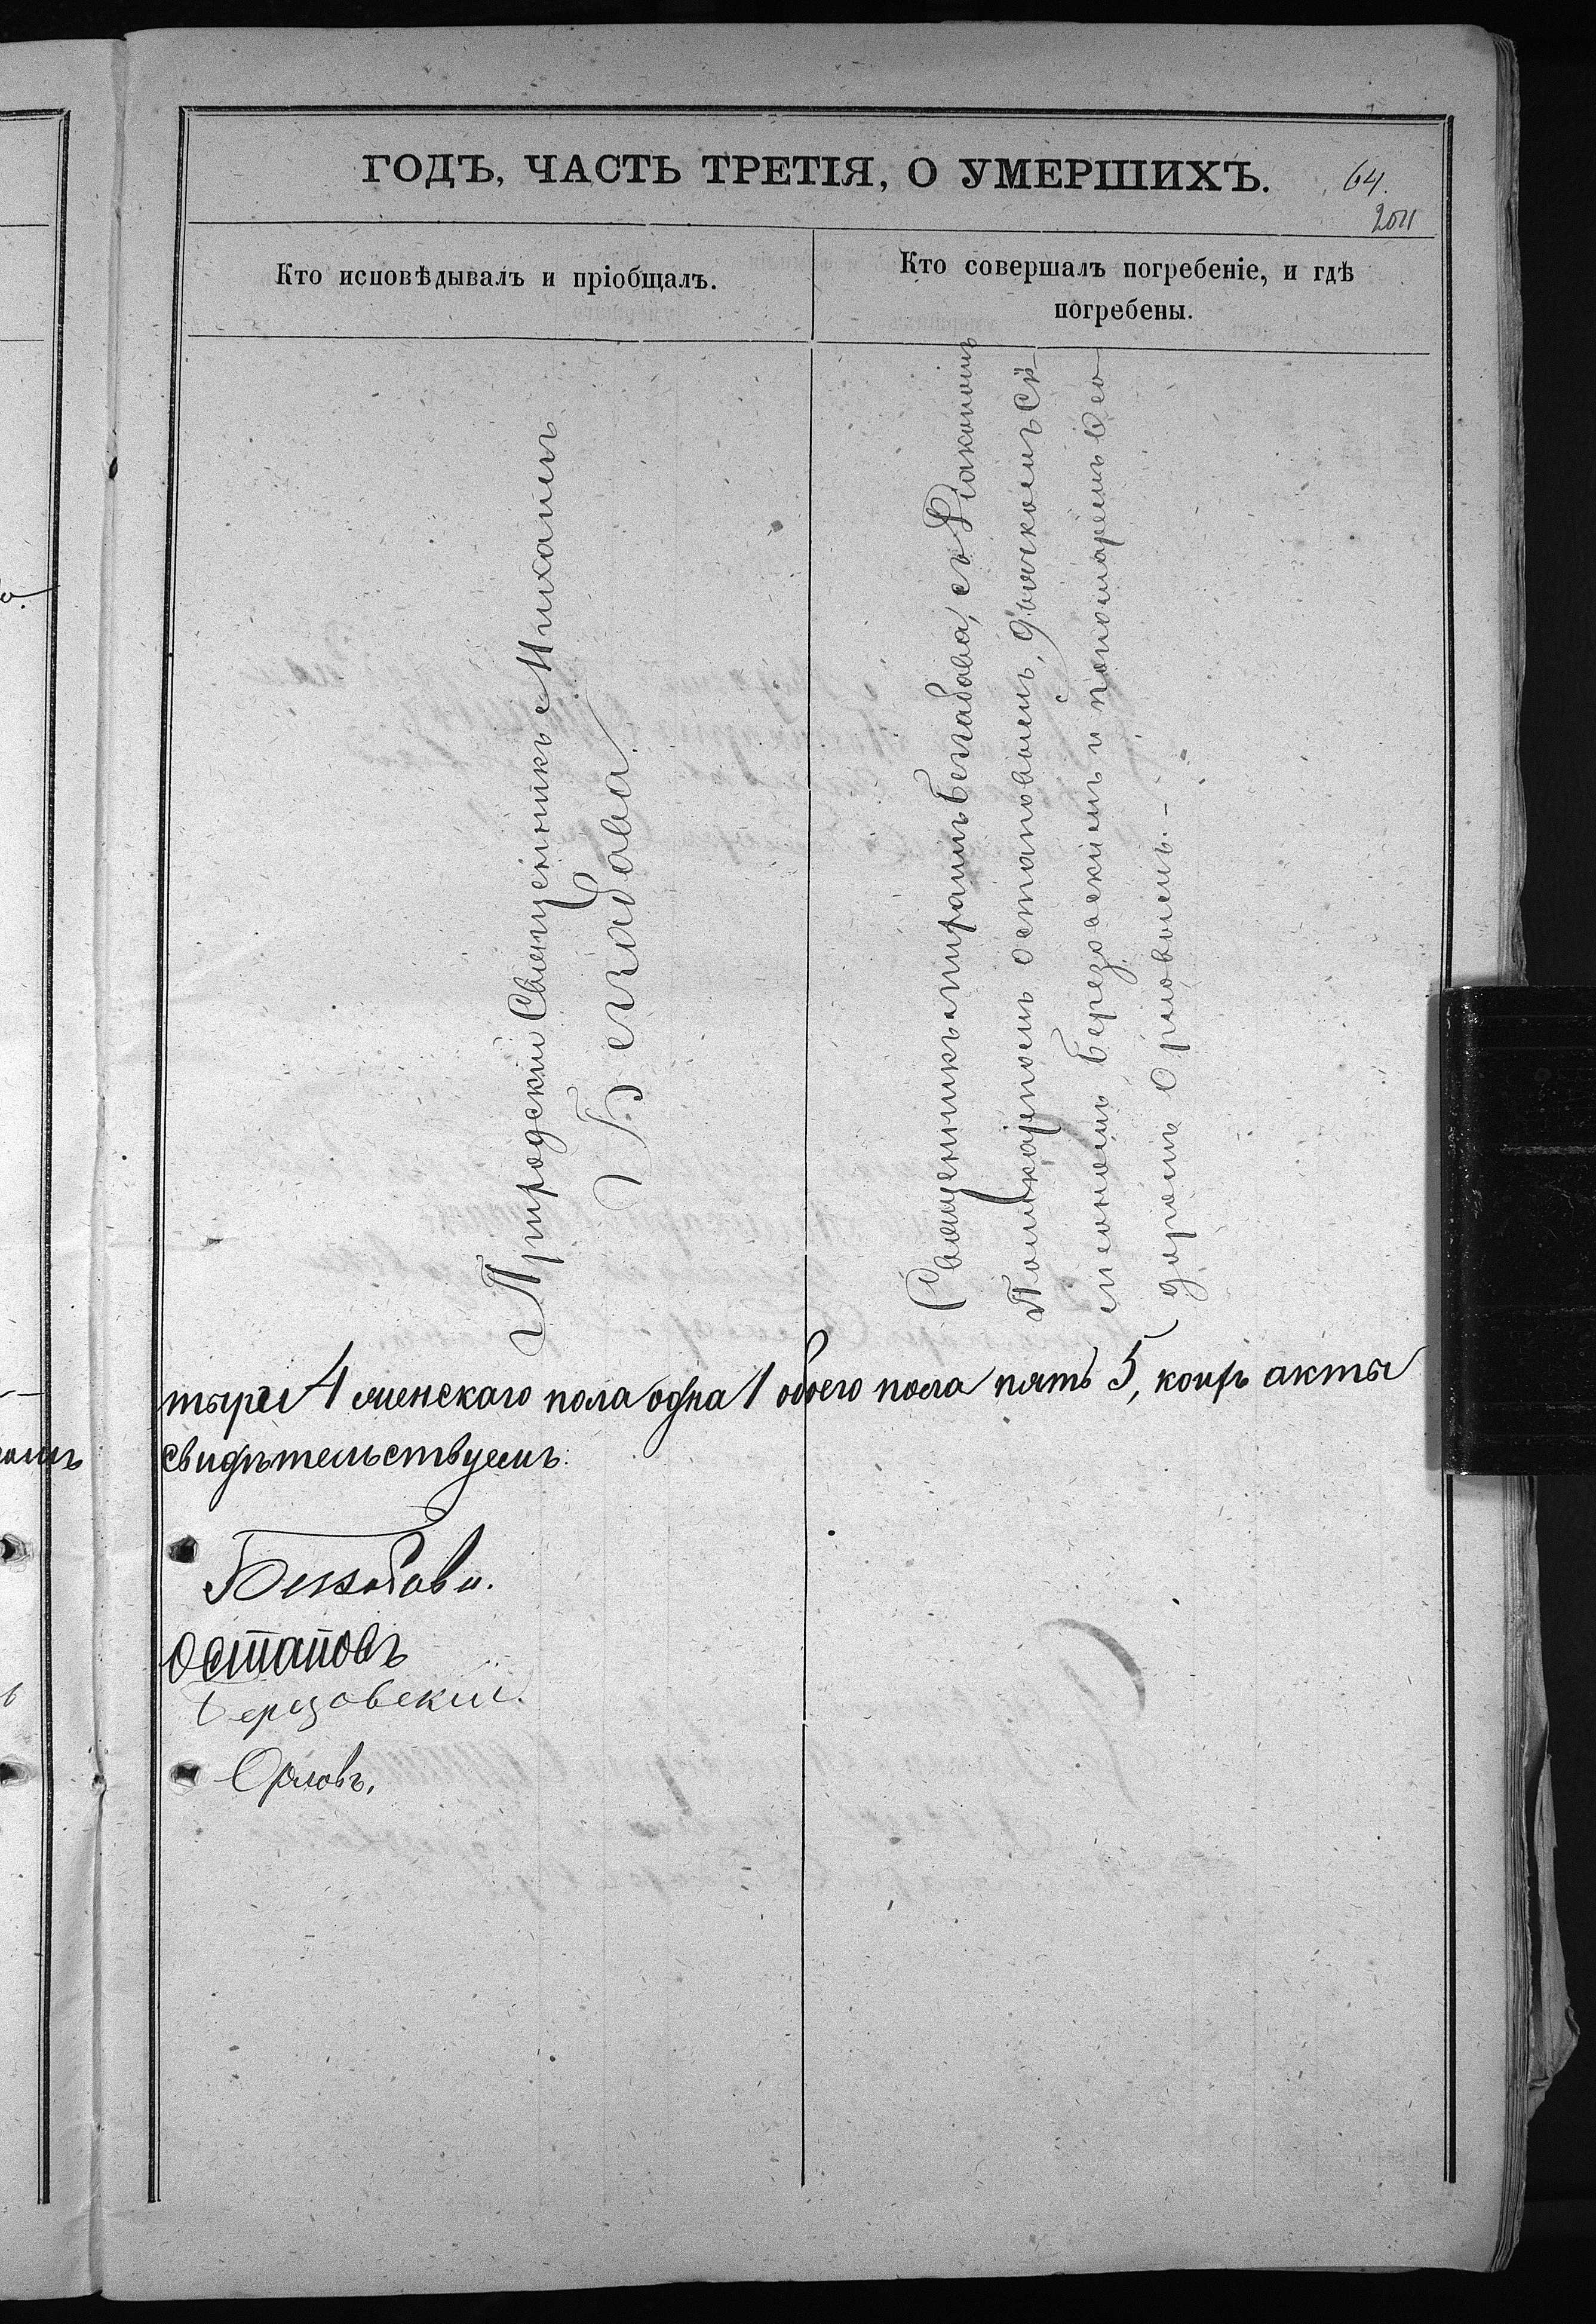 ГОДЪ, ЧАСТЬ ТРЕТІЯ, О УМЕРШИХЪ.
64.
Кто исповѣдывалъ и пріобщалъ.
Кто совершалъ погребеніе, и гдѣ
погребены.
Приходскій Священникъ Михаилъ
Безабава
Священникъ Михаилъ Безабава, съ Діакономъ
Поликарпомъ Остаповымъ, дьячкомъ Си
меономъ Березовскимъ и пономаремъ Ѳео
доромъ Орловымъ. -
тыре 4 женскаго пола одна 1 обоего пола пять 5, коихъ акты
свидѣтельствуемъ:
Безабава.
Остаповъ
Березовскій.
Орловъ.